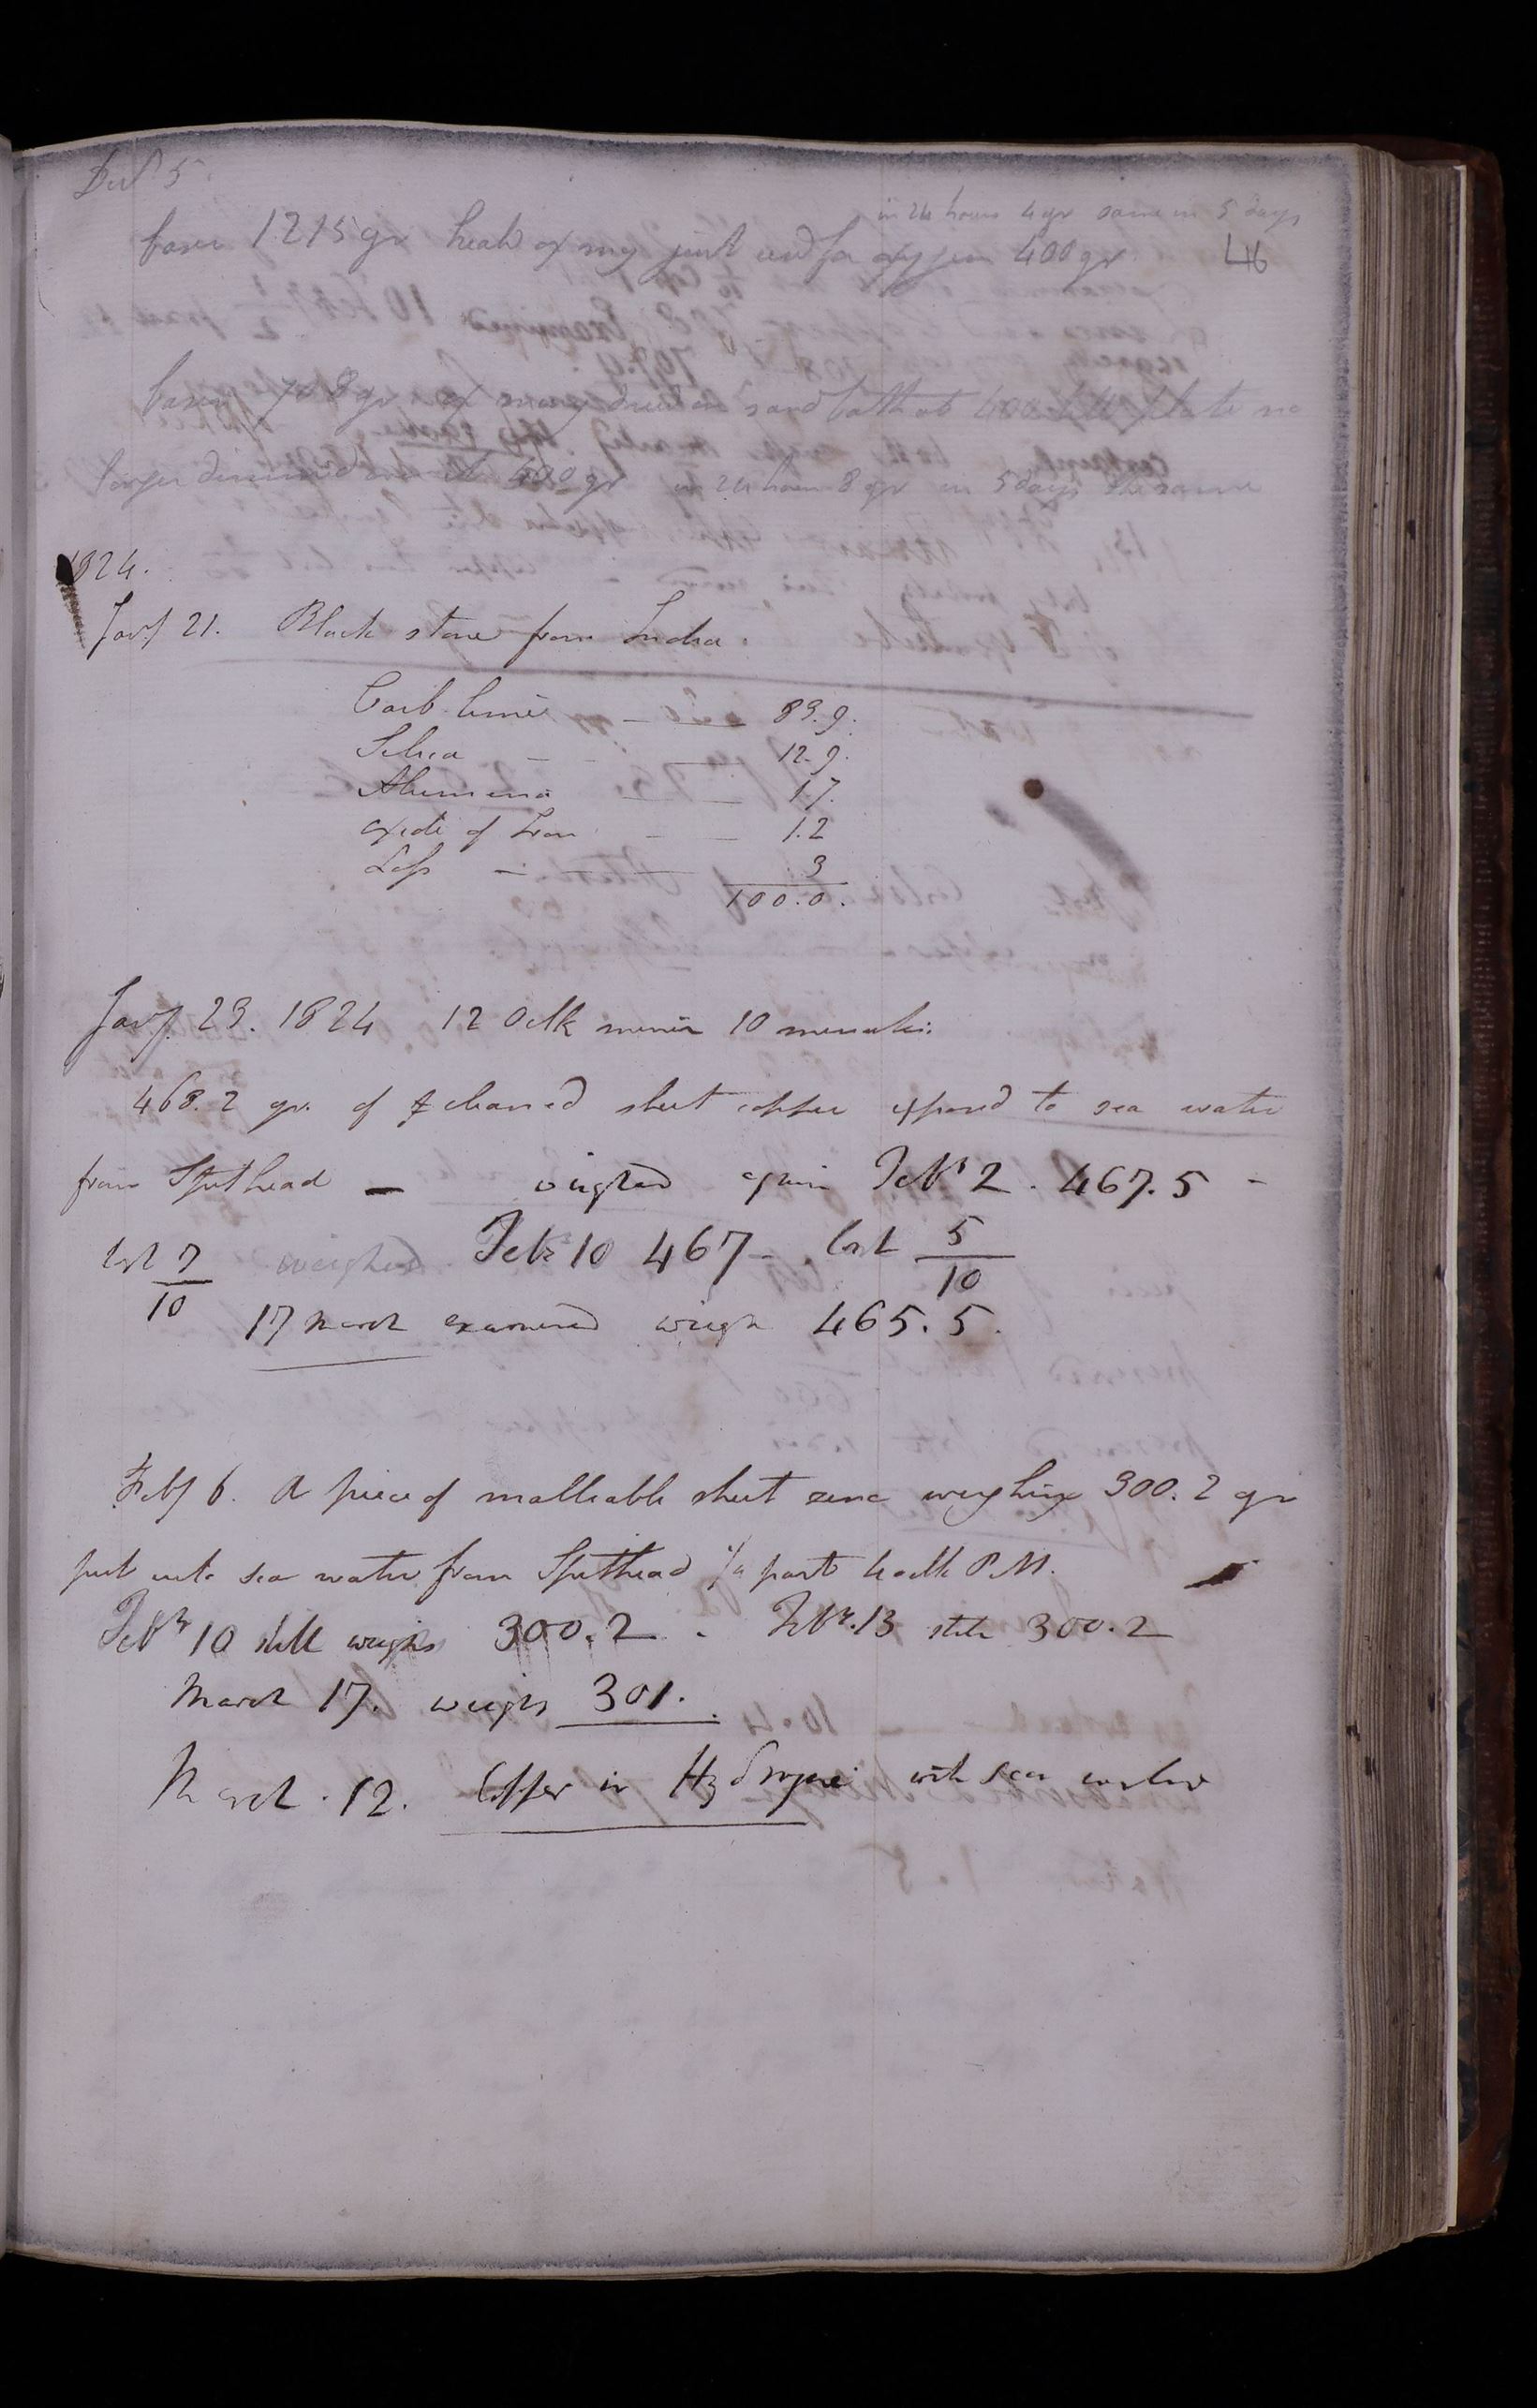 Dec.r 5
in 24 hours 4 gr same in 5 days
basin 1215 gr heat of my just used for oxygen 400 gr
46
basin 708 gr of mang dried on sand bath at 400 till plate no
longer dimmed 400 gr in 24 hours 8 gr in 5 days the same
1824.
Jany 21. Black stone from India.
Carb lime — — 83.9.
Silica - - — 12.9.
Alumina — — 1.7.
oxide of Iron — — 1.2
Loss — — .3
100.0.
Jany 23. 1824 12 oClk minus 10 minutes
468.2 gr. of cleaned sheet copper exposed to sea water
from Spithead — weighed again Febr 2. 467.5 -
lost 7/10 weighed Febr 10 467 - lost 5/10
17 March examined weigh 465.5.
Feby 6. A piece of malleable sheet zinc weighing 300.2 gr
put into sea water from Spithead 1/4 past 4 oclk P.M.
Febr 10 still weighs 300.2 - Febr. 13 still 300.2
March 17. weighs 301.
March. 12. Copper in Hydrogene with sea water